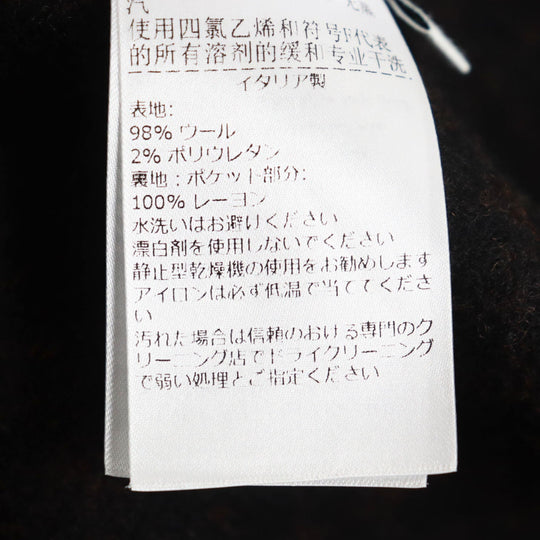 汽
使用四氯乙烯和符号F代表
的所有溶剂的缓和专业干洗
イタリア製
表地:
98% ウール
2% ポリウレタン
裏地 : ポケット部分:
100% レーヨン
水洗いはお避けください
漂白剤を使用しないでください
静止型乾燥機の使用をお勧めします
アイロンは必ず低温で当ててくださ
い
汚れた場合は信頼のおける専門のク
リーニング店でドライクリーニング
で弱い処理とご指定ください